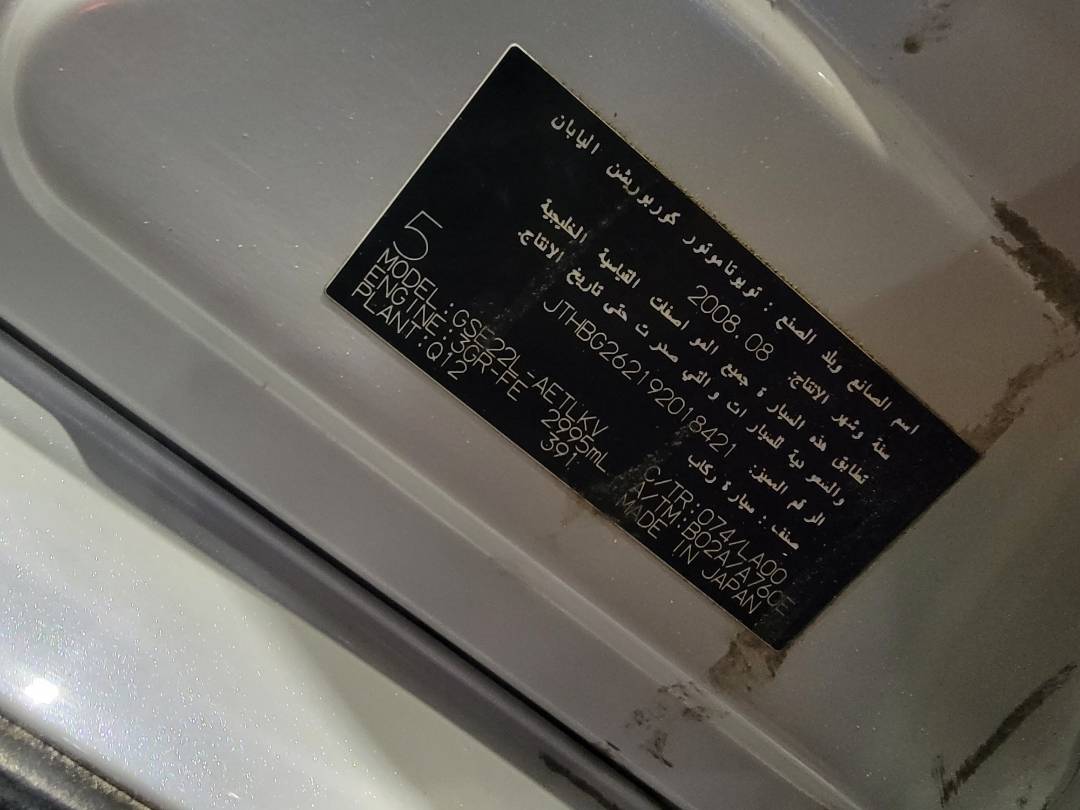 اسم الصانع وبلد الصنع : تويوتا موتور كوربوريشن اليابان
سنة وشهر الانتاج: 2008.08
تطابق هذه السيارة جميع المواصفات القياسية الخليجية
والسعودية للسيارات والتي صدرت حتى تاريخ الانتاج.
الرقم المميز: JTHBG262192018421
صنف : سيارة ركاب
5
C/TR:074/LA00
MODEL:GSE22L-AETLKV
A/TM:B02A/A760E
ENGINE:3GR-FE 2995mL
MADE IN JAPAN
PLANT:Q12 391